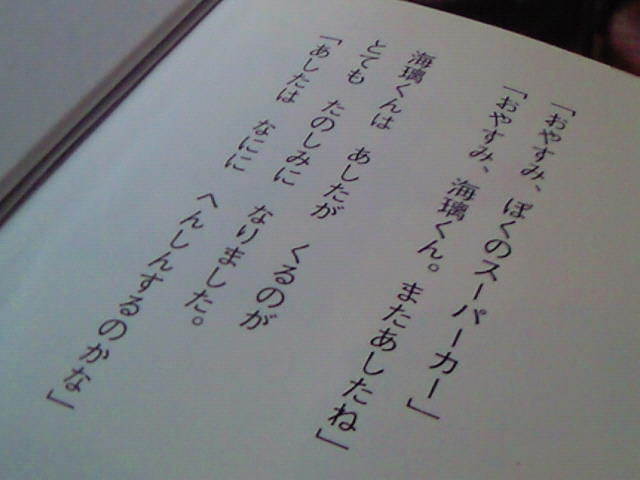 「おやすみ、ぼくのスーパーカー」
「おやすみ、海璃くん。またあしたね」
海璃くんは　あしたが　くるのが
とても　たのしみに　なりました。
「あしたは　なにに　へんしんするのかな」